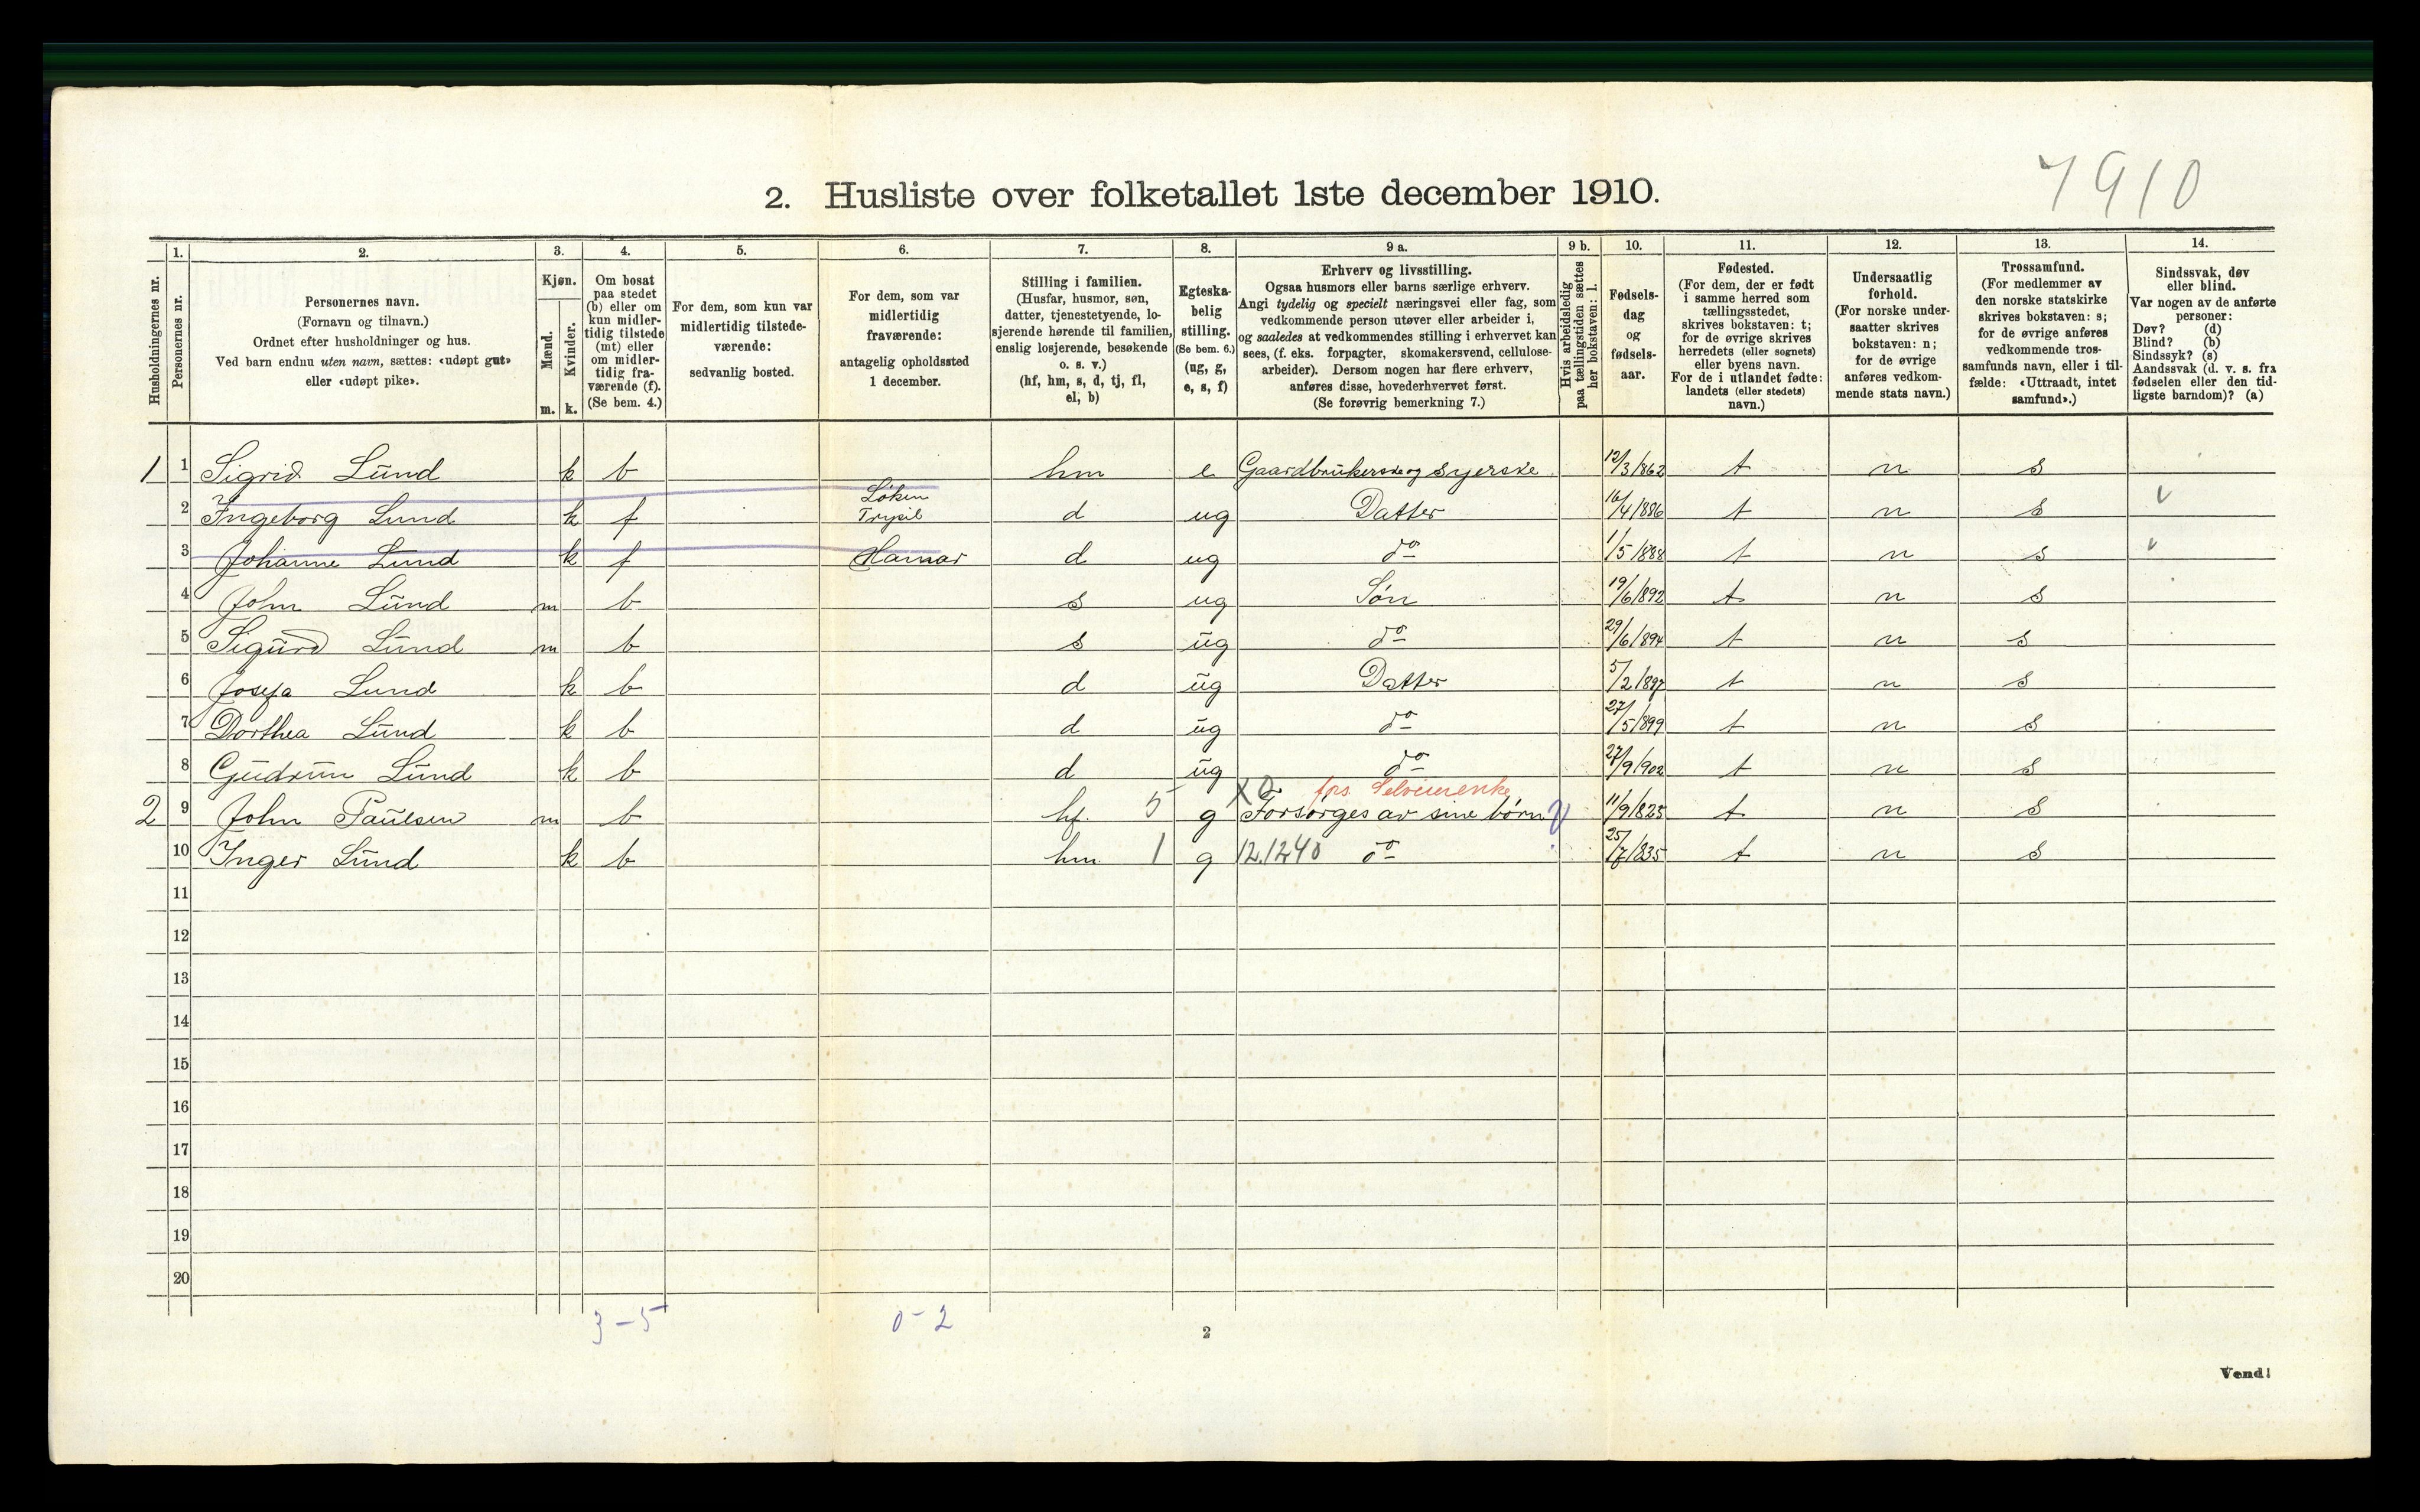 7910
2. Husliste over folketallet 1ste december 1910.
Husholdningernes nr.
1.
Personernes nr.
2.
Personernes navn.
(Fornavn og tilnavn.)
Ordnet efter husholdninger og hus.
Ved barn endnu uten navn, sættes: «udøpt gut»
eller «udøpt pike».
3.
Kjøn.
Mænd.
Kvinder.
m. k.
4.
Om bosat
paa stedet
(b) eller om
kun midler-
tidig tilstede
(mt) eller
om midler-
tidig fra-
værende (f).
(Se bem. 4.)
5.
For dem, som kun var
midlertidig tilstede-
værende:
sedvanlig bosted.
6.
For dem, som var
midlertidig
fraværende:
antagelig opholdssted
1 december.
7.
Stilling i familien.
(Husfar, husmor, søn,
datter, tjenestetyende, lo-
sjerende hørende til familien,
enslig losjerende, besøkende
o. s. v.)
(hf, hm, s, d, tj, fl,
el, b)
8.
Egteska-
belig
stilling.
(Se bem. 6.)
(ug, g,
e, s, f)
9 a.
Erhverv og livsstilling.
Ogsaa husmors eller barns særlige erhverv.
Angi tydelig og specielt næringsvei eller fag, som
vedkommende person utøver eller arbeider i,
og saaledes at vedkommendes stilling i erhvervet kan
sees, (f. eks. forpagter, skomakersvend, cellulose-
arbeider). Dersom nogen har flere erhverv,
anføres disse, hovederhvervet først.
(Se forøvrig bemerkning 7.)
9 b.
Hvis arbeidsledig
paa tællingstiden sættes
her bokstaven: l.
10.
Fødsels-
dag
og
fødsels-
aar.
11.
Fødested.
(For dem, der er født
i samme herred som
tællingsstedet,
skrives bokstaven: t;
for de øvrige skrives
herredets (eller sognets)
eller byens navn.
For de i utlandet fødte:
landets (eller stedets)
navn.)
12.
Undersaatlig
forhold.
(For norske under-
saatter skrives
bokstaven: n;
for de øvrige
anføres vedkom-
mende stats navn.)
13.
Trossamfund.
(For medlemmer av
den norske statskirke
skrives bokstaven: s;
for de øvrige anføres
vedkommende tros-
samfunds navn, eller i til-
fælde: «Uttraadt, intet
samfund».)
14.
Sindssvak, døv
eller blind.
Var nogen av de anførte
personer:
Døv? (d)
Blind? (b)
Sindssyk? (s)
Aandssvak (d. v. s. fra
fødselen eller den tid-
ligste barndom)? (a)
1 1 Sigrid Lund k b hm e Gaardbrukerske og syerske 12/3 1862 t n s
2 Ingeborg Lund k f Løken Trysil d ug Datter 16/4 1886 t n s v
3 Johanne Lund k f Hamar d ug do 1/5 1888 t n s v
4 John Lund m b s ug Søn 19/6 1892 t n s
5 Sigurd Lund m b s ug do 29/6 1894 t n s
6 Josefa Lund k b d ug Datter 5/2 1897 t n s
7 Dorthea Lund k b d ug do 27/5 1899 t n s
8 Gudrun Lund k b d ug do 27/9 1902 t n s
2 9 John Paulsen m b hf. 5 g X0 Forsørges av sine børn 11/9 1825 t n s
10 Inger Lund k b hm 1 g 12.1240 do 25/7 1835 t n s
11
12
13
14
15
16
17
18
19
20
3-5 0-2
2
Vend!